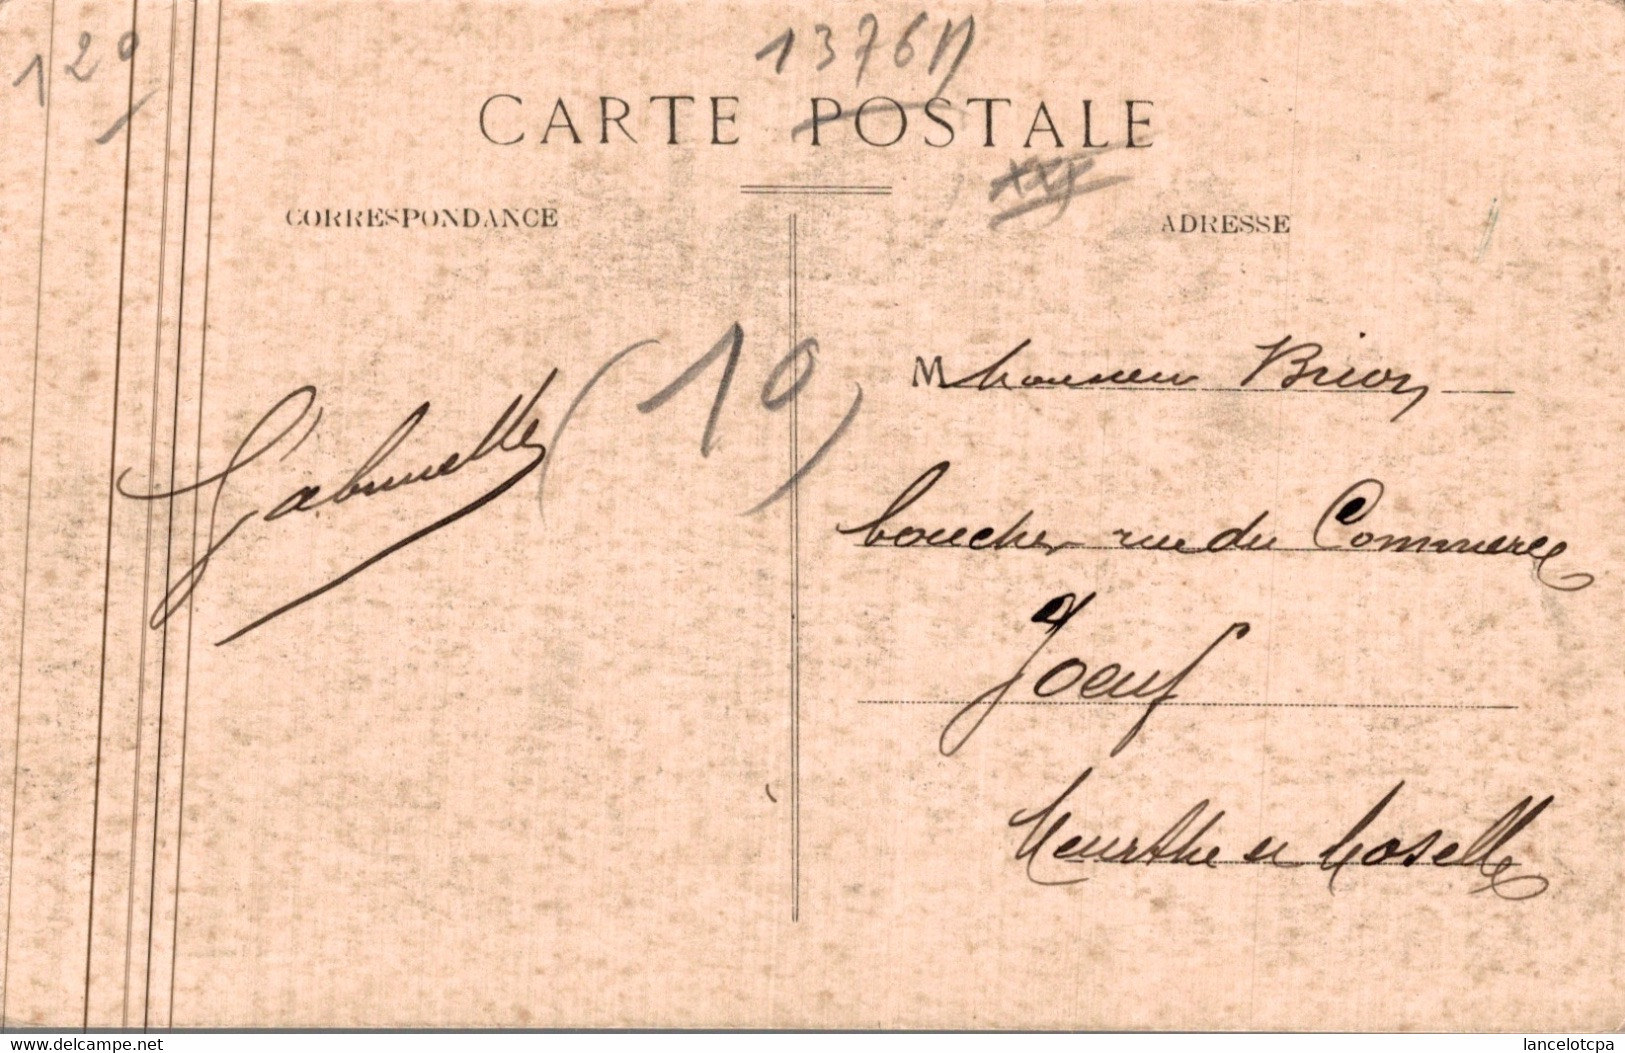 120
1376N
CARTE POSTALE
XXJ
CORRESPONDANCE
ADRESSE
(10)
Gabrielle
Monsieur Brion
boucher rue du Commerce
Joeuf
Meurthe et Moselle
delcampe.net
lancelotcpa